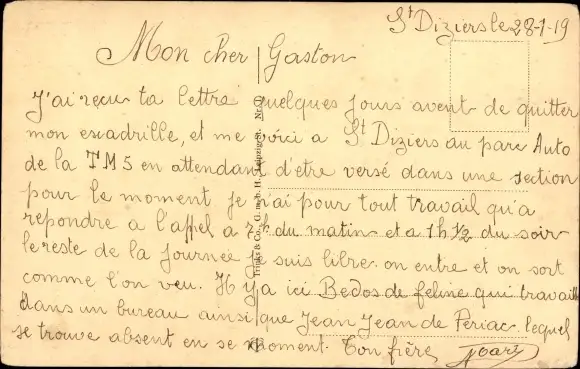 St Diziers le 28-1-19
Mon cher Gaston
J'ai reçu ta lettre quelques jours avent de quitter
mon escadrille, et me voici a St Diziers au parc Auto
de la TM5 en attendant d'etre versé dans une section
pour le moment je n'ai pour tout travail qu'a
repondre a l'appel a 7h du matin et a 1h 1/2 du soir
le reste de la journée je suis libre. on entre et on sort
comme l'on veu. Il y a ici Bedos de feline qui travaille
dans un bureau ainsi que Jean Jean de Periac. lequel
se trouve absent en se moment. Ton frère
Trinks & Co., G. m. b. H., Leipzig